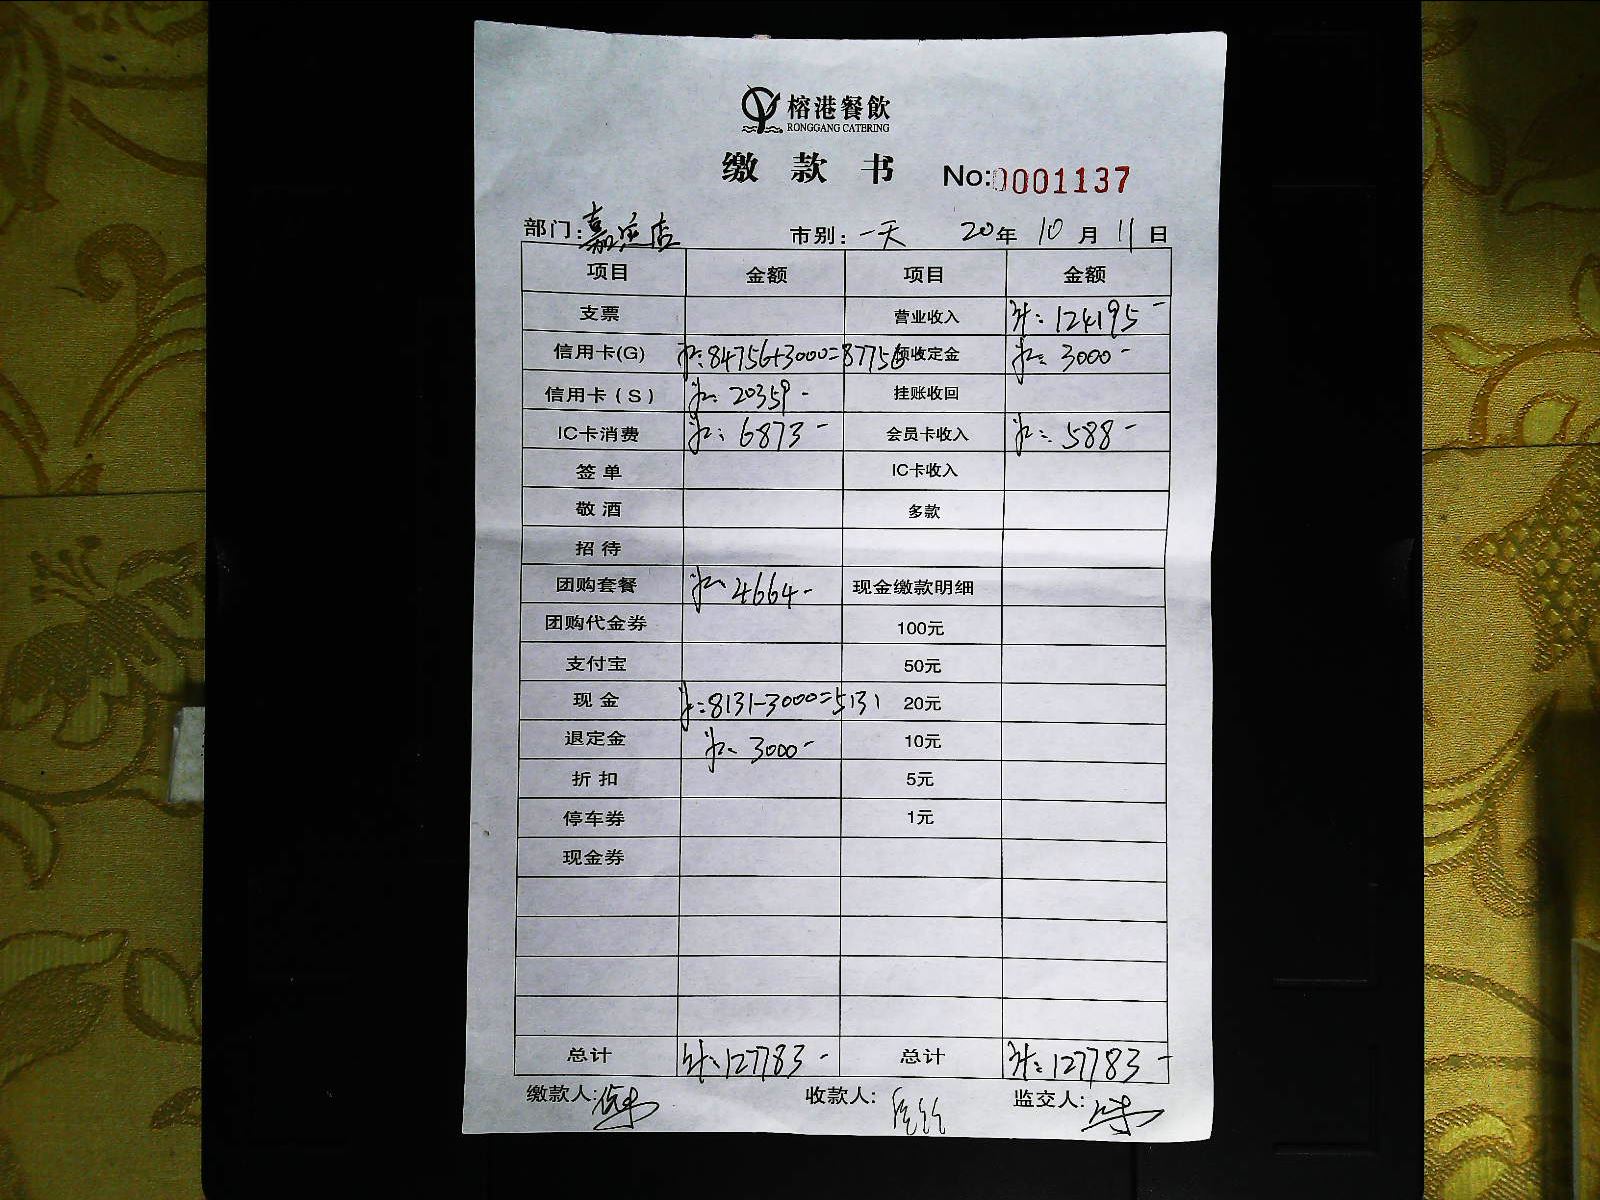 榕港餐飲
RONGGANG CATERING
缴款书 No:0001137
部门: 嘉 店 市别: 一天 20年 10月 11日
项目 金额 项目 金额
支票 营业收入 124195-
信用卡(G) 84756+3000=87756 预收定金 3000-
信用卡(S) 20359- 挂账收回
IC卡消费 6873- 会员卡收入 588-
签单 IC卡收入
敬酒 多款
招待
团购套餐 4664- 现金缴款明细
团购代金券 100元
支付宝 50元
现金 8131-3000=5131 20元
退定金 3000- 10元
折扣 5元
停车券 1元
现金券
总计 127783- 总计 127783-
缴款人: 收款人: 监交人: